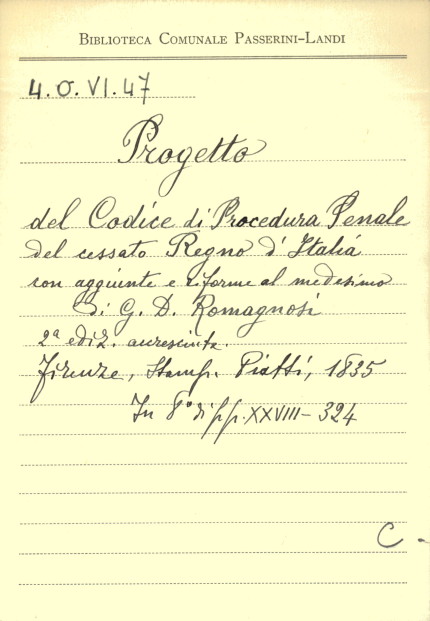 BIBLIOTECA COMUNALE PASSERINI-LANDI
4.O.VI.47
Progetto
del Codice di Procedura Penale
del cessato Regno d'Italia
con aggiunte e riforme al medesimo
di G. D. Romagnosi
2ª ediz. accresciuta.
Firenze, Stamp. Piatti, 1835
In 8° di pp. XXVIII-324
C-